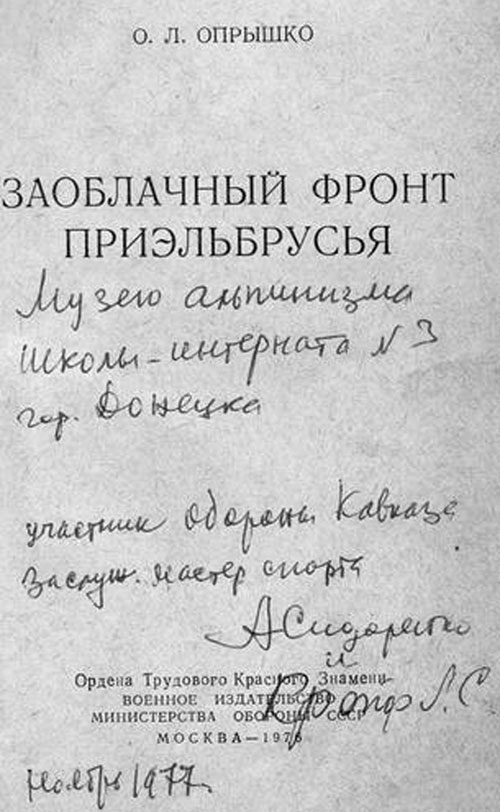 О. Л. ОПРЫШКО
ЗАОБЛАЧНЫЙ ФРОНТ
ПРИЭЛЬБРУСЬЯ
Музею альпинизма
школы-интерната № 3
гор. Донецка
участник обороны Кавказа
Заслуж. мастер спорта
А Сидоренко
и
Л. С.
Ордена Трудового Красного Знамени
ВОЕННОЕ ИЗДАТЕЛЬСТВО
МИНИСТЕРСТВА ОБОРОНЫ СССР
МОСКВА—1976
Ноябрь 1977.